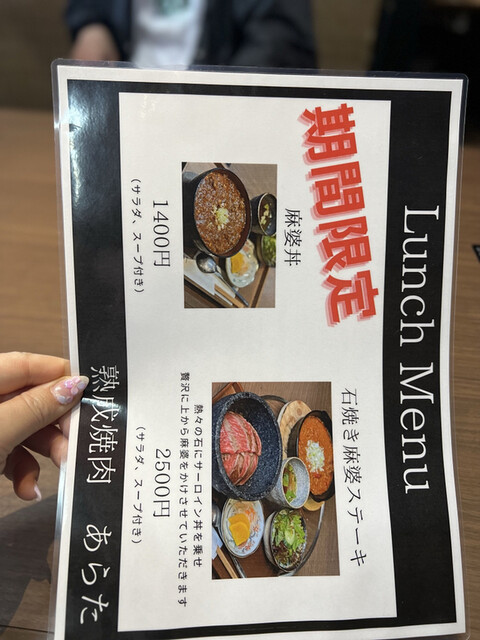 Lunch Menu
期間限定
麻婆丼
1400円
(サラダ、スープ付き)
石焼き麻婆ステーキ
熱々の石にサーロイン丼を乗せ
贅沢に上から麻婆をかけさせていただきます
2500円
(サラダ、スープ付き)
熟成焼肉 あらた